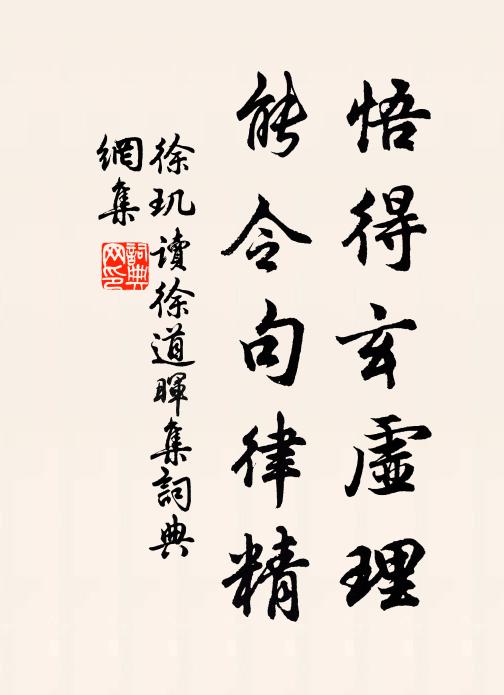 悟得玄虛理
能令句律精
徐玑讀徐道暉集詞典
網集
詞典網印